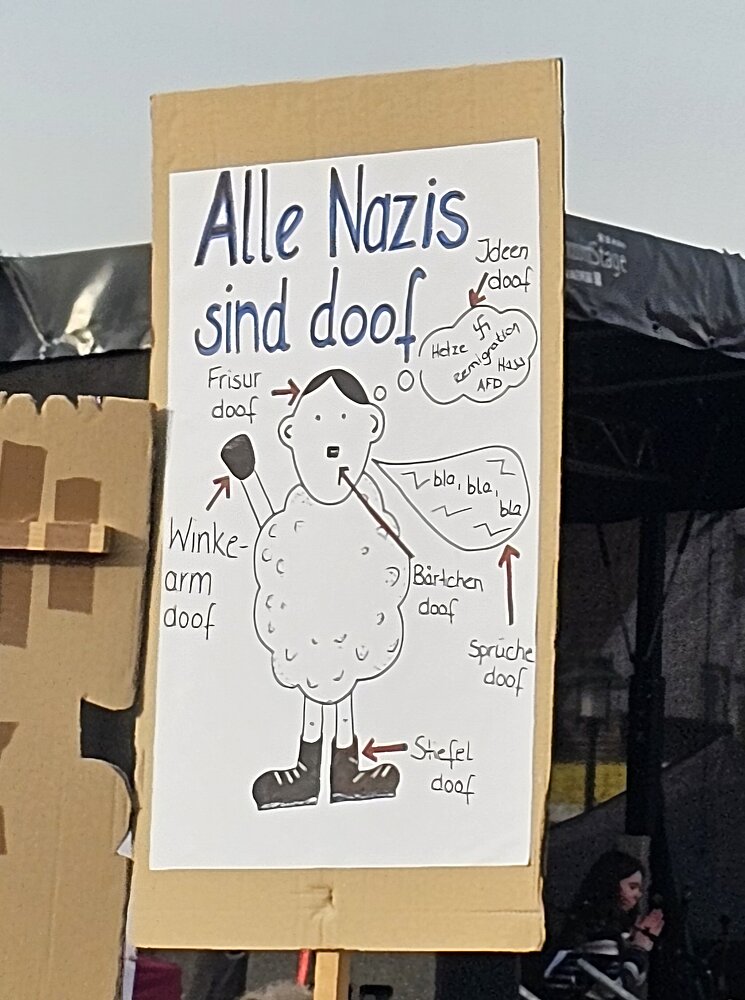 Alle Nazis
sind doof
Ideen
doof
Hetze
Remigration
Hass
AFD
Frisur
doof
bla, bla,
bla
Winke-
arm
doof
Bärtchen
doof
Sprüche
doof
Stiefel
doof
Stage